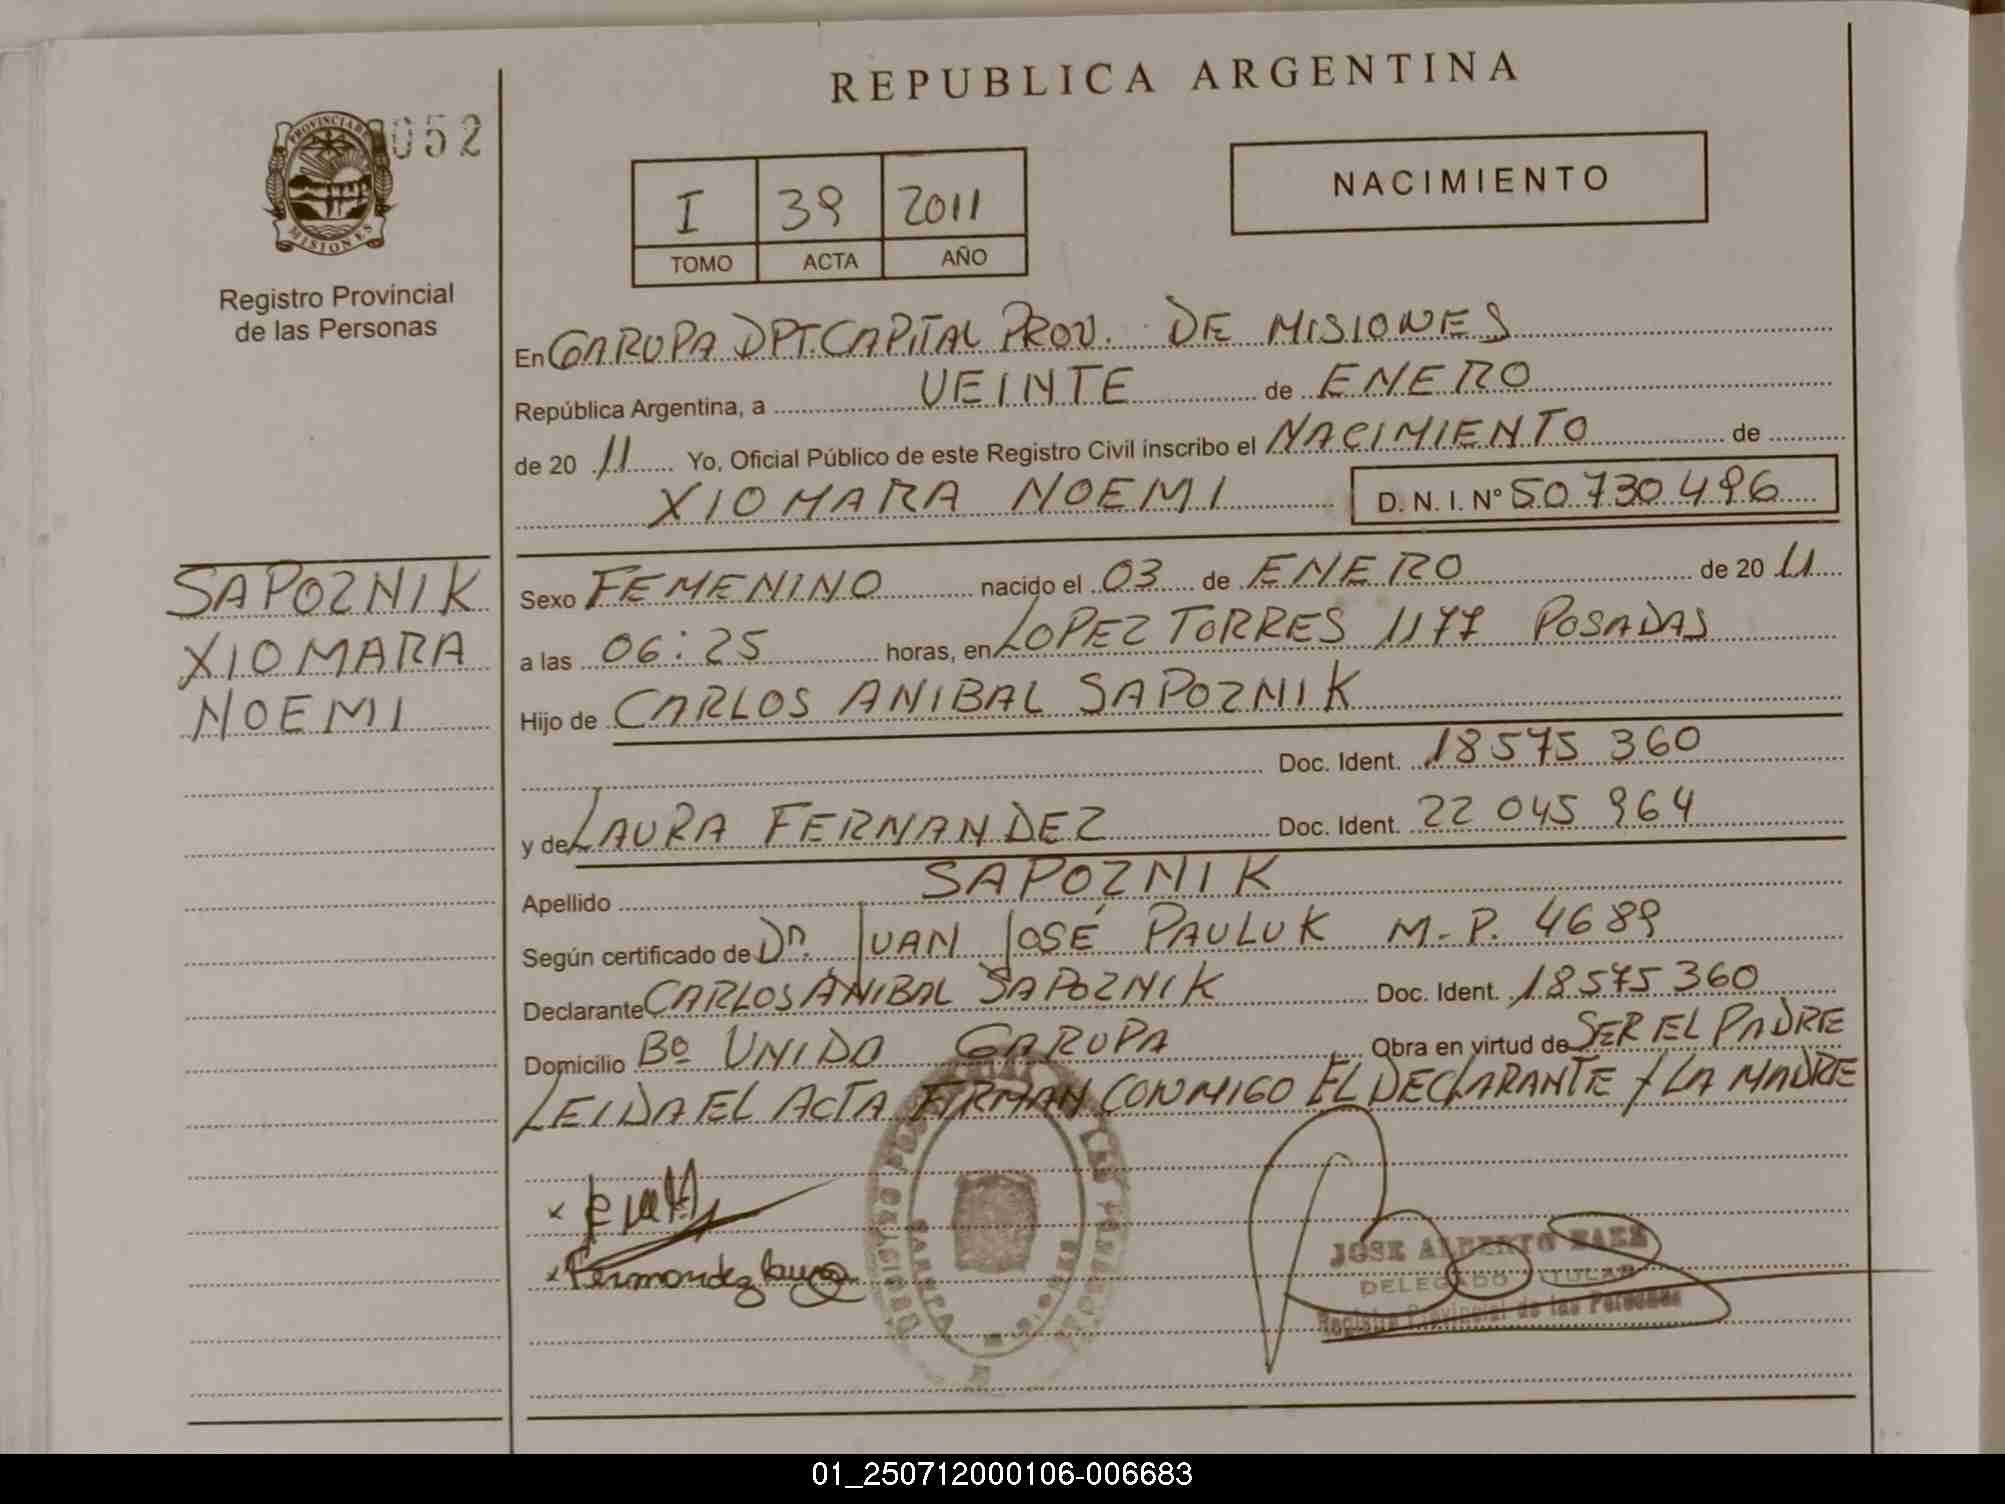 REPUBLICA ARGENTINA
052
PROVINCIA DE
MISIONES
Registro Provincial
de las Personas
I 39 2011
TOMO ACTA AÑO
NACIMIENTO
En GARUPA DPT. CAPITAL PROV. DE MISIONES
República Argentina, a VEINTE de ENERO
de 20 11 Yo, Oficial Público de este Registro Civil inscribo el NACIMIENTO de
XIOMARA NOEMI D. N. I. Nº 50 730 496
SAPOZNIK
XIOMARA
NOEMI
Sexo FEMENINO nacido el 03 de ENERO de 20 11
a las 06:25 horas, en LOPEZ TORRES 1177 POSADAS
Hijo de CARLOS ANIBAL SAPOZNIK
Doc. Ident. 18 575 360
y de LAURA FERNANDEZ Doc. Ident. 22 045 964
Apellido SAPOZNIK
Según certificado de Dr. JUAN JOSÉ PAULUK M.P. 4689
Declarante CARLOS ANIBAL SAPOZNIK Doc. Ident. 18 575 360
Domicilio Bº UNIDO GARUPA Obra en virtud de SER EL PADRE
LEIDA EL ACTA FIRMAN CONMIGO EL DECLARANTE Y LA MADRE
Fernandez Laura
JOSE ALBERTO BAEZ
DELEGADO TITULAR
Registro Provincial de las Personas
01_250712000106-006683